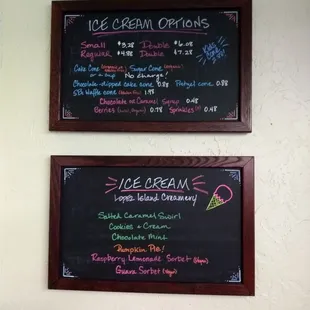 ICE CREAM OPTIONS
Small $3.28 Double $6.08
Regular $4.88 Double $7.28
Cake Cone Sugar Cone
or a cup No charge!
Chocolate-dipped cake cone 0.88 Pretzel cone 0.88
Waffle cone 1.48
Chocolate or Caramel Syrup 0.48
Berries 0.78 Sprinkles 0.48
ICE CREAM
Lopez Island Creamery
Salted Caramel Swirl
Cookies + Cream
Chocolate Mint
Pumpkin Pie!
Raspberry Lemonade Sorbet (Vegan)
Guava Sorbet (Vegan)